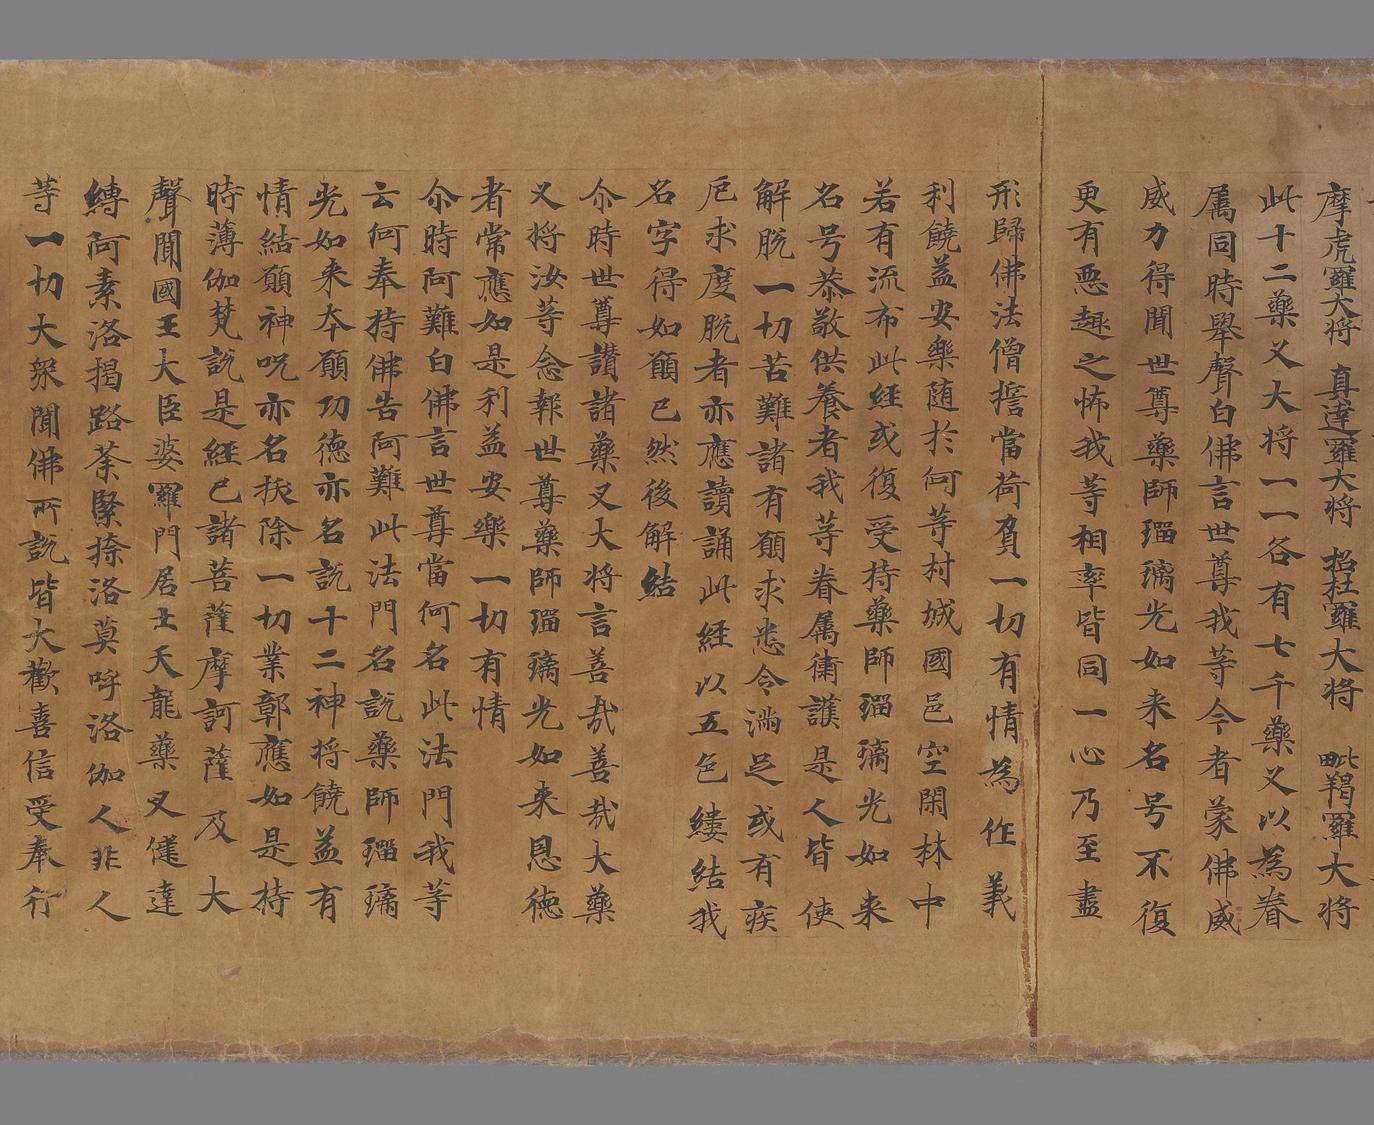 摩虎羅大将 真達羅大将 招杜羅大将 毗羯羅大将
此十二藥叉大将一一各有七千藥叉以為眷
属同時舉聲白佛言世尊我等今者蒙佛威
威力得聞世尊藥師瑠璃光如来名号不復
更有惡趣之怖我等相率皆同一心乃至盡
形歸佛法僧誓當荷負一切有情為作義
利饒益安樂随於何等村城國邑空閑林中
若有流布此經或復受持藥師瑠璃光如来
名号恭敬供養者我等眷属衛護是人皆使
解脱一切苦難諸有願求悉令満足或有疾
厄求度脱者亦應讀誦此經以五色縷結我
名字得如願已然後解結
尒時世尊讃諸藥叉大将言善哉善哉大藥
叉将汝等念報世尊藥師瑠璃光如来恩徳
者常應如是利益安樂一切有情
尒時阿難白佛言世尊當何名此法門我等
云何奉持佛告阿難此法門名説藥師瑠璃
光如来夲願功徳亦名説十二神将饒益有
情結願神呪亦名拔除一切業鄣應如是持
時薄伽梵説是經已諸菩薩摩訶薩及大
聲聞國王大臣婆羅門居士天龍藥叉健達
縛阿素洛揭路荼緊捺洛莫呼洛伽人非人
等一切大衆聞佛所説皆大歡喜信受奉行